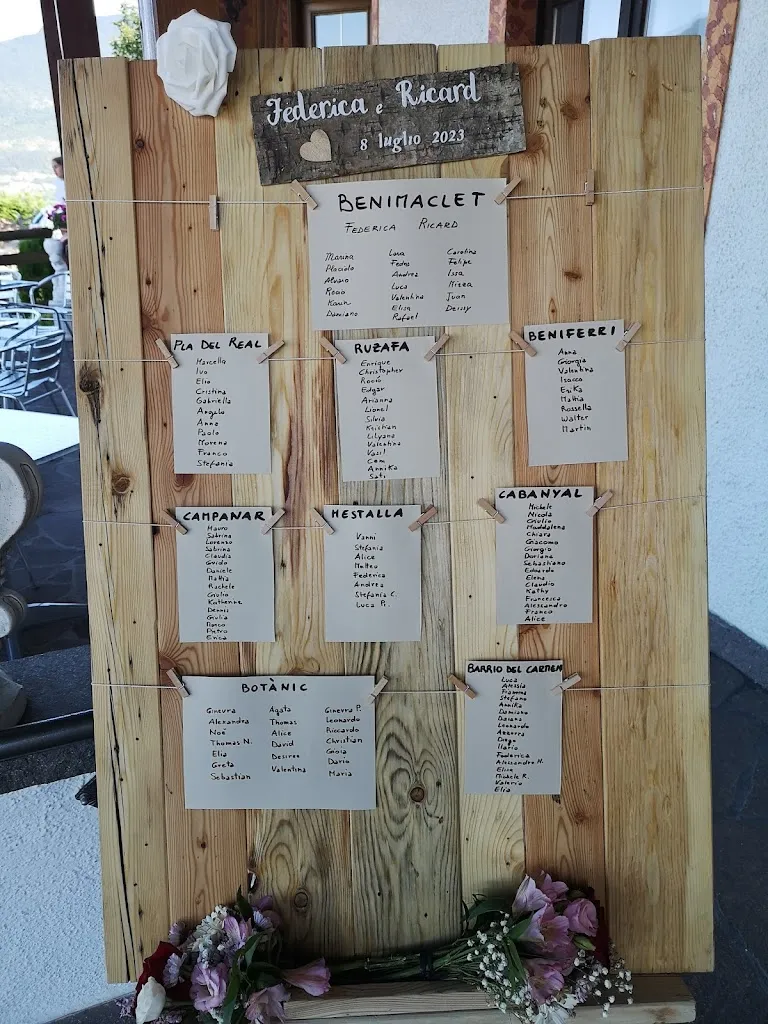 Federica e Ricard
8 luglio 2023
BENIMACLET
FEDERICA RICARD
Marina Lara Carolina
Placido Fedra Felipe
Alvaro Andrea Issa
Rocio Luca Mirza
Karin Valentina Juan
Damiano Elisa Deissy
Rafael
PLA DEL REAL
Marcella
Ivo
Elio
Cristina
Gabriella
Angelo
Anna
Paolo
Morena
Franco
Stefania
RUZAFA
Enrique
Christopher
Rociò
Edgar
Arianna
Lionel
Silvia
Kristian
Lilyana
Valentina
Vasil
Cem
Annika
Sati
BENIFERRI
Anna
Giorgia
Valentina
Isacco
Erika
Mattia
Rossella
Walter
Martin
CAMPANAR
Mauro
Sabrina
Lorenzo
Sabrina
Claudia
Guido
Daniele
Mattia
Rachele
Giulio
Katherine
Dennis
Giulia
Marco
Pietro
Erica
MESTALLA
Vanni
Stefania
Alice
Matteo
Federica
Andrea
Stefania C.
Luca P.
CABANYAL
Michele
Nicola
Giulio
Maddalena
Chiara
Giacomo
Giorgio
Doriana
Sebastiano
Edoardo
Elena
Claudio
Kathy
Francesca
Alessandro
Franco
Alice
BOTÀNIC
Ginevra Agata Ginevra P.
Alexandra Thomas Leonardo
Noè Alice Riccardo
Thomas N. David Christian
Elia Desiree Gioia
Greta Valentina Dario
Sebastian Maria
BARRIO DEL CARMEN
Luca
Alessia
Fiamma
Stefano
Annika
Damiano
Daiana
Leonardo
Azzurra
Diego
Ilario
Federica
Alessandro N.
Elisa
Michele R.
Valeria
Elia